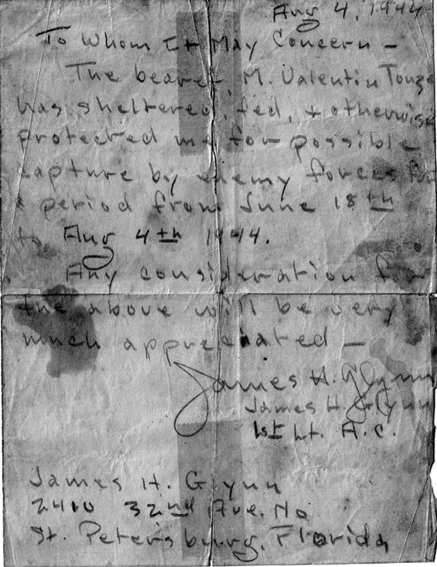 Aug 4, 1944
To Whom It May Concern —
The bearer, M. Valentin Touze
has sheltered, fed, & otherwise
protected me for possible
capture by enemy forces for
a period from June 18th
to Aug 4th 1944.
Any consideration for
the above will be very
much appreciated —
James H. Glynn
James H Glynn
1st Lt. A.C.
James H. Glynn
2410 32nd Ave. No.
St. Petersburg, Florida